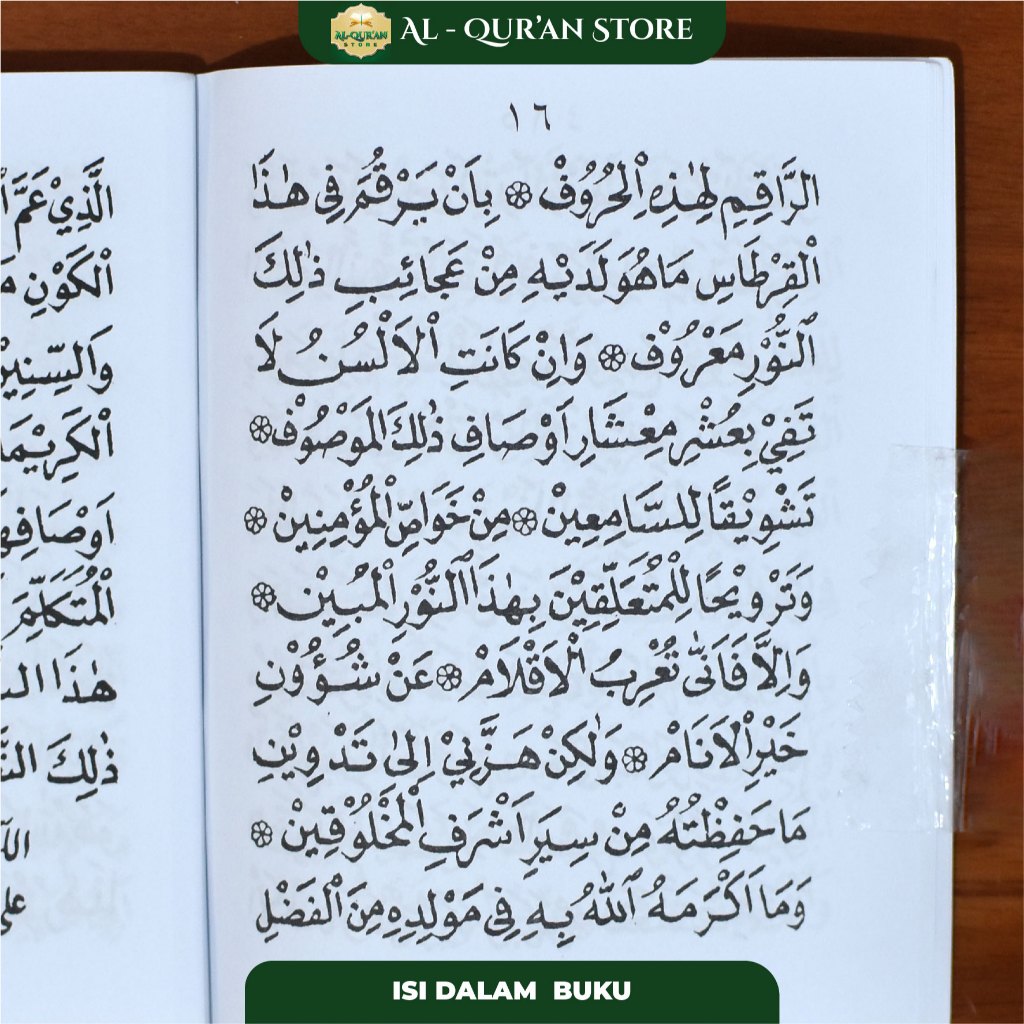 AL-QUR'AN
STORE
AL - QUR'AN STORE
١٦
الرَّاقِمِ لِهٰذِهِ الْحُرُوْفْ ۞ بِاَنْ يَرْقُمَ فِى هٰذَا
الْقِرْطَاسِ مَاهُوَ لَدَيْهِ مِنْ عَجَائِبِ ذٰلِكَ
النُّوْرِ مَعْرُوْفْ ۞ وَاِنْ كَانَتِ الْاَلْسُنُ لَا
تَفِيْ بِعُشْرِ مِعْشَارِ اَوْصَافِ ذٰلِكَ الْمَوْصُوْفْ ۞
تَشْوِيْقًا لِلسَّامِعِيْنَ ۞ مِنْ خَوَاصِّ الْمُؤْمِنِيْنْ ۞
وَتَرْوِيْحًا لِلْمُتَعَلِّقِيْنَ بِهٰذَا النُّوْرِ الْمُبِيْنِ ۞
وَاِلَّا فَاَنّٰى تُعْرِبُ الْاَقْلَامْ ۞ عَنْ شُؤُوْنِ
خَيْرِ الْاَنَامْ ۞ وَلٰكِنْ هَزَّنِيْ اِلٰى تَدْوِيْنِ
مَا حَفِظْتُهُ مِنْ سِيَرِ اَشْرَفِ الْمَخْلُوْقِيْنْ ۞
وَمَا اَكْرَمَهُ اللّٰهُ بِهِ فِيْ مَوْلِدِهِ مِنَ الْفَضْلِ
الَّذِيْ عَمَّ
الْكَوْنِ
وَالسِّنِيْنَ
اَوْصَافِهَا
الْمُتَكَلِّمَ
هٰذَا
ذٰلِكَ
ISI DALAM BUKU